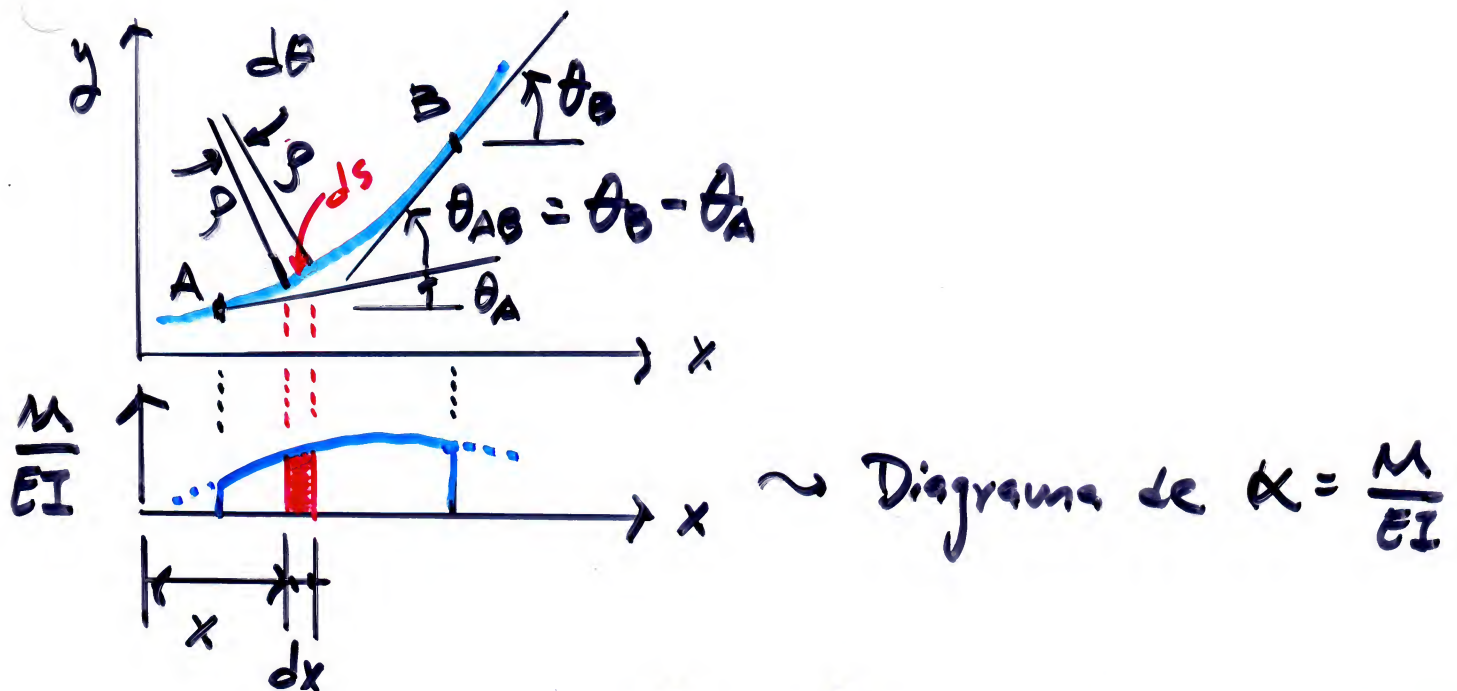 y
dθ
ρ
ρ
ds
B
θ_B
θ_AB = θ_B - θ_A
A
θ_A
x
M/EI
x
~ Diagrama de α = M/EI
x
dx